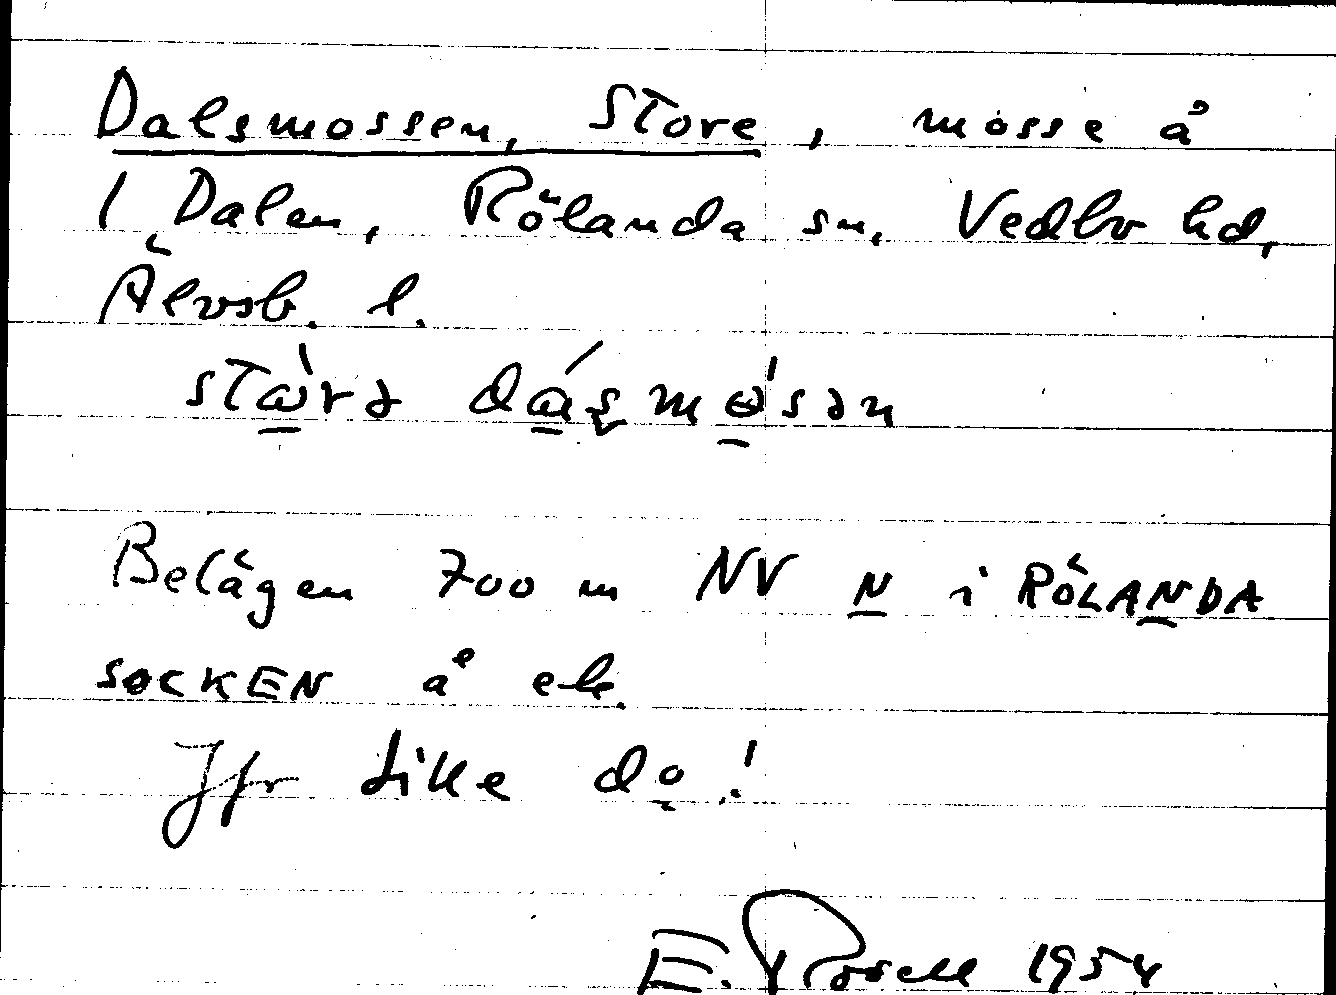 Dalsmossen, Store, mosse å
1 Dalen, Rölanda sn, Vedbo hd,
Älvsb. l.
Belägen 700 m NV N i RÖLANDA
SOCKEN å ek.
Jfr Lille do!
E. Rosell 1954